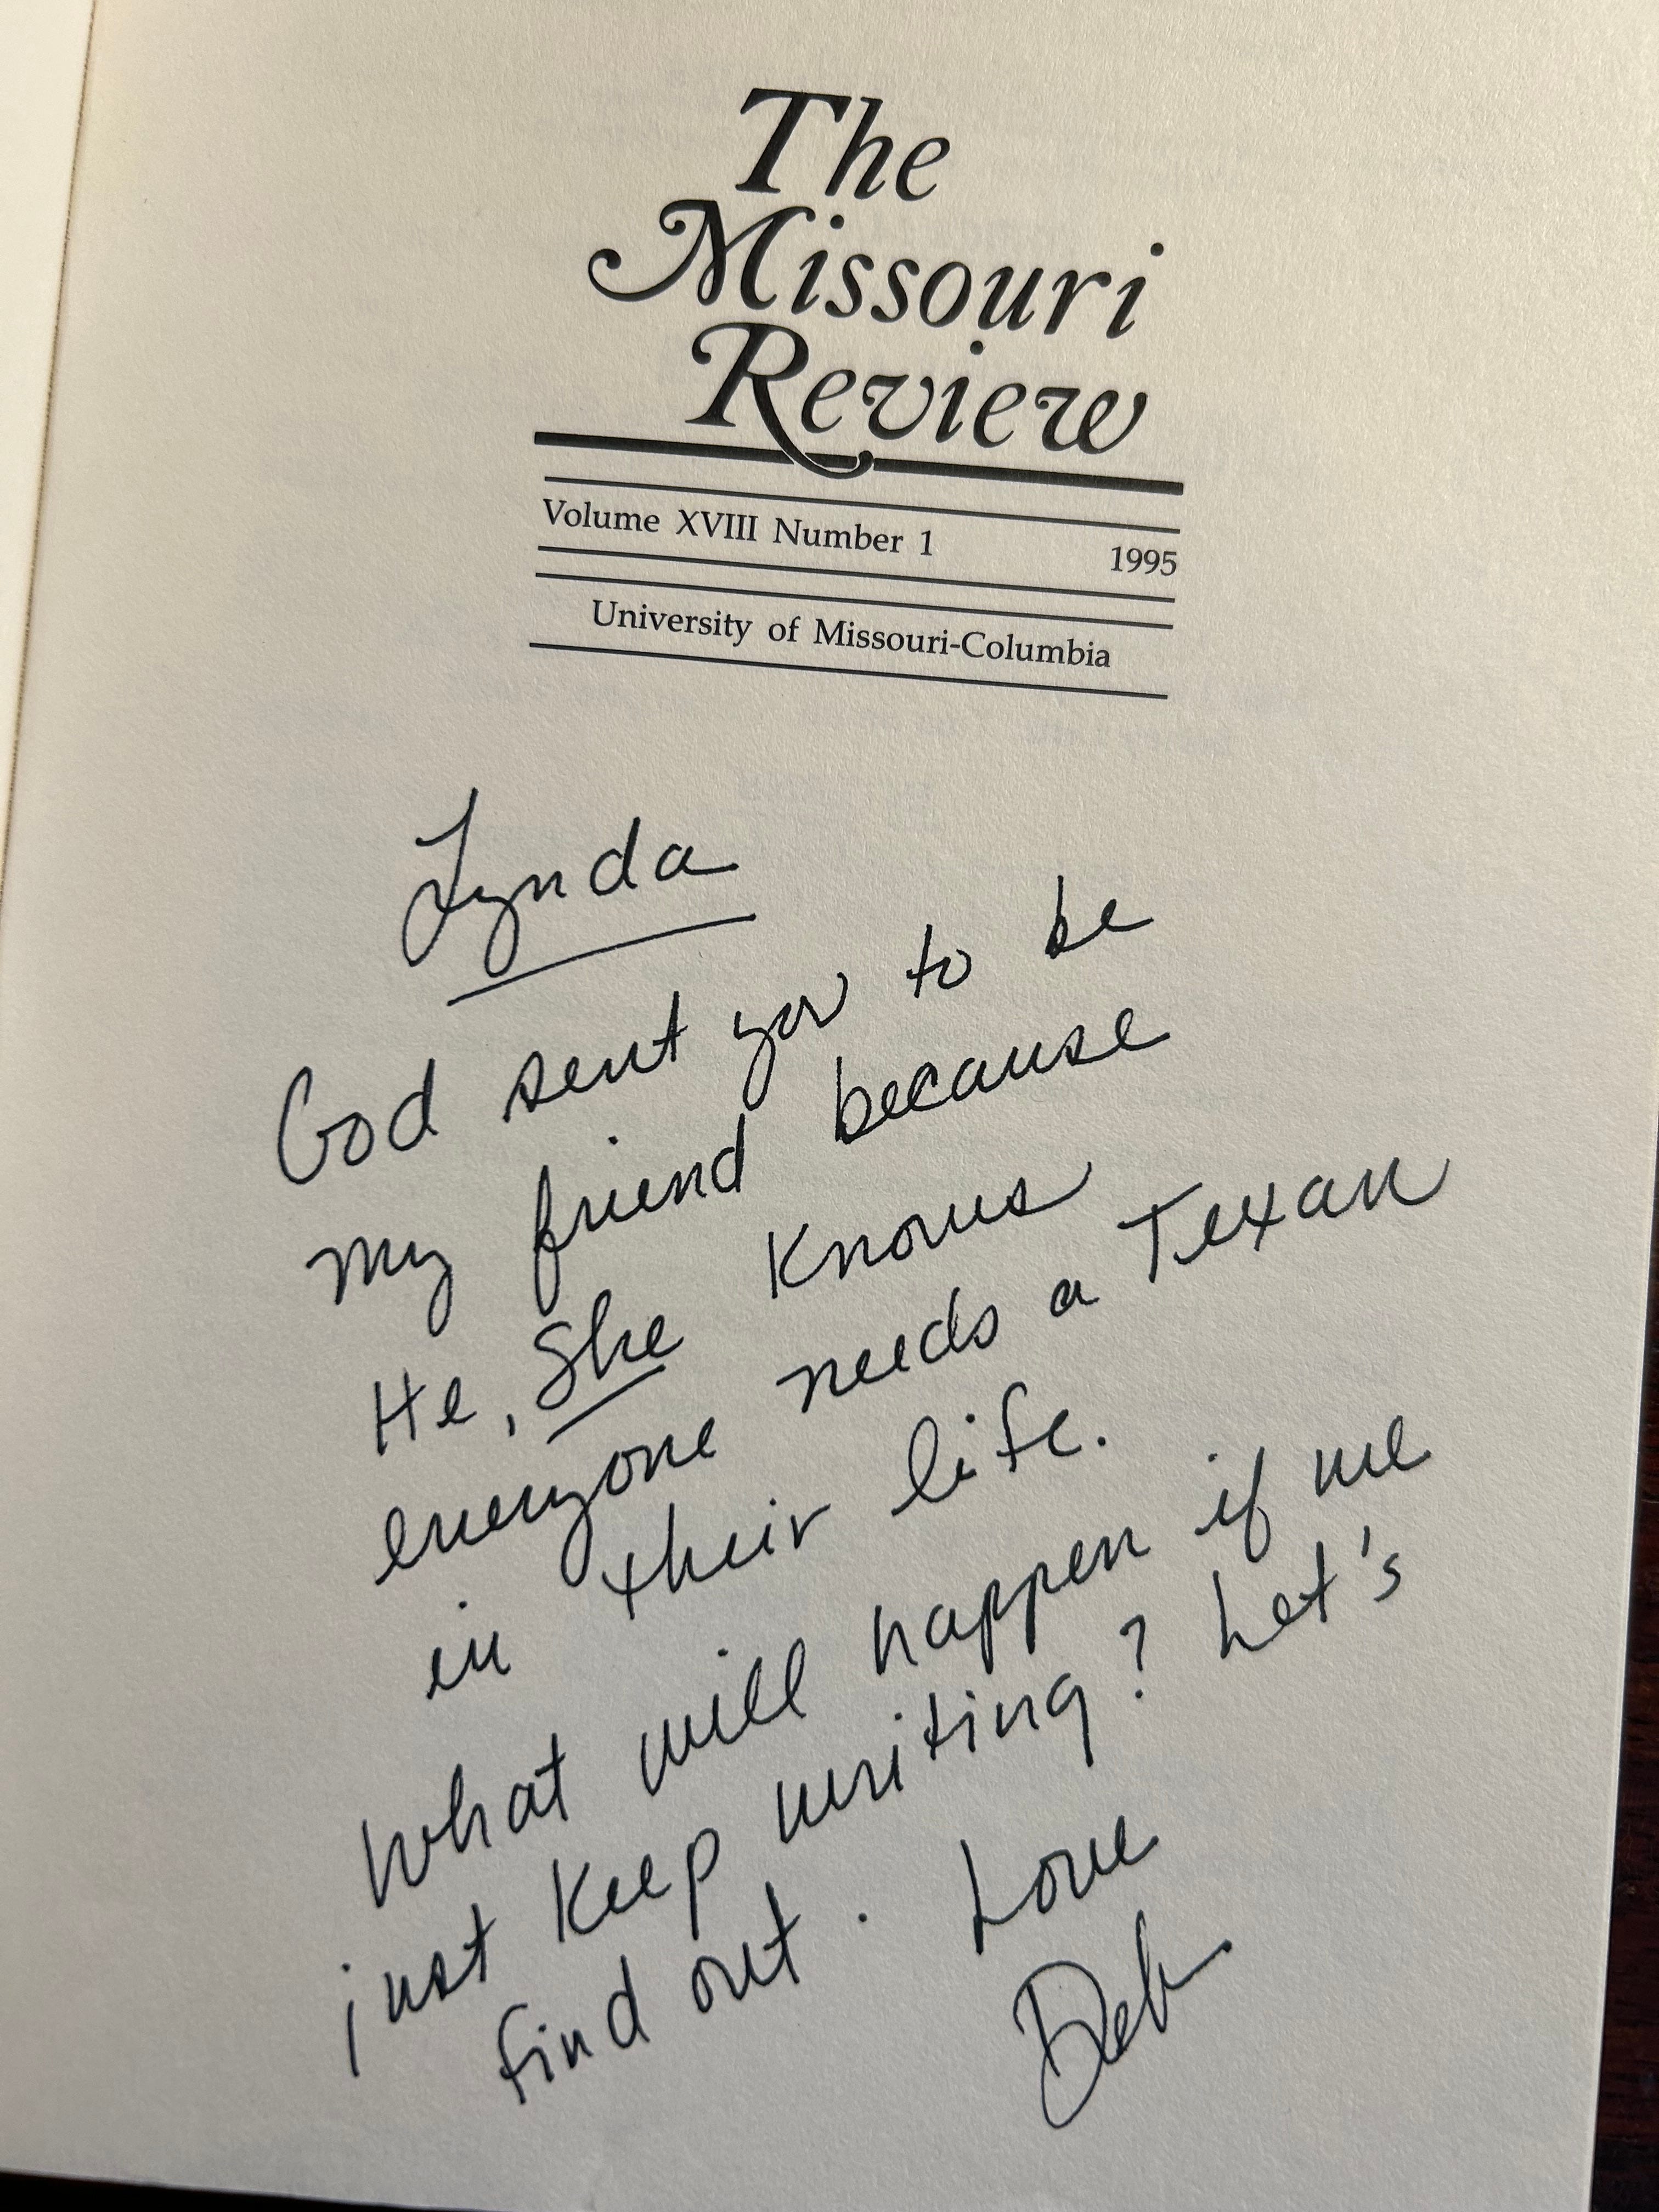 The
Missouri
Review
Volume XVIII Number 1 1995
University of Missouri-Columbia
Lynda
God sent you to be
my friend because
He, She knows
everyone needs a Texan
in their life.
What will happen if we
just keep writing? Let's
find out. Love
Deb